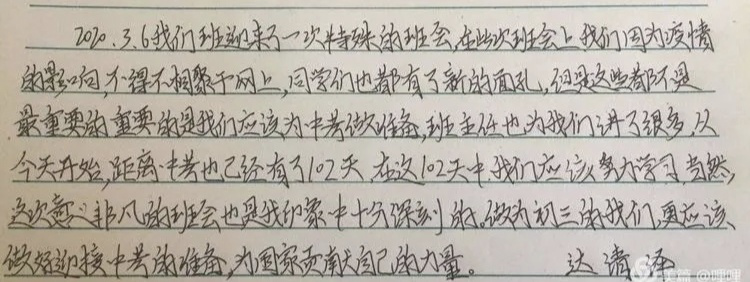 2020.3.6我们班迎来了一次特殊的班会,在此次班会上我们因为疫情
的影响,不得不相聚于网上,同学们也都有了新的面孔,但是这些都不是
最重要的,重要的是我们应该为中考做准备,班主任也为我们讲了很多,从
今天开始,距离中考也已经有了102天,在这102天中我们应该努力学习,当然,
这次意义非凡的班会也是我印象中十分深刻的。做为初三的我们,更应该
做好迎接中考的准备,为国家贡献自己的力量。 达清
美篇